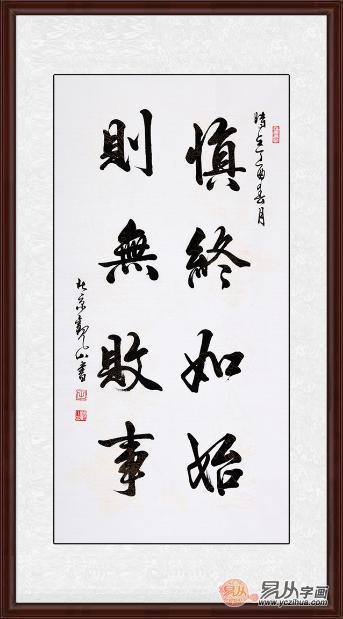 時在丁酉春月
慎終如始
則無敗事
於京
山書
易从字画
www.yczihua.com